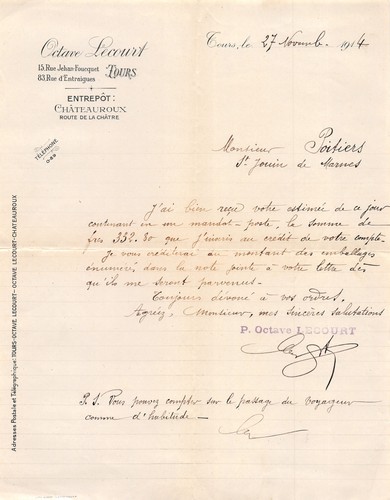 Octave Lecourt
15, Rue Jehan-Foucquet
83, Rue d'Entraigues
TOURS
ENTREPÔT :
CHÂTEAUROUX
ROUTE DE LA CHÂTRE
TÉLÉPHONE
Tours, le 27 Novemb. 1914
Monsieur Poitiers
St Jouin de Marnes
J'ai bien reçu votre estimée de ce jour
contenant in un mandat-poste, la somme de
frcs 332.80 que j'inscris au crédit de votre compte.
Je vous créditerai au montant des emballages
énumérés dans la note jointe à votre lettre dès
qu'ils me seront parvenus.
Toujours dévoué à vos ordres.
Agréez, Monsieur, mes sincères salutations
P. Octave LECOURT
P. S. Vous pouvez compter sur le passage du voyageur
comme d'habitude.
Adresses Postale et Télégraphique: TOURS-OCTAVE, LECOURT - OCTAVE, LECOURT-CHATEAUROUX